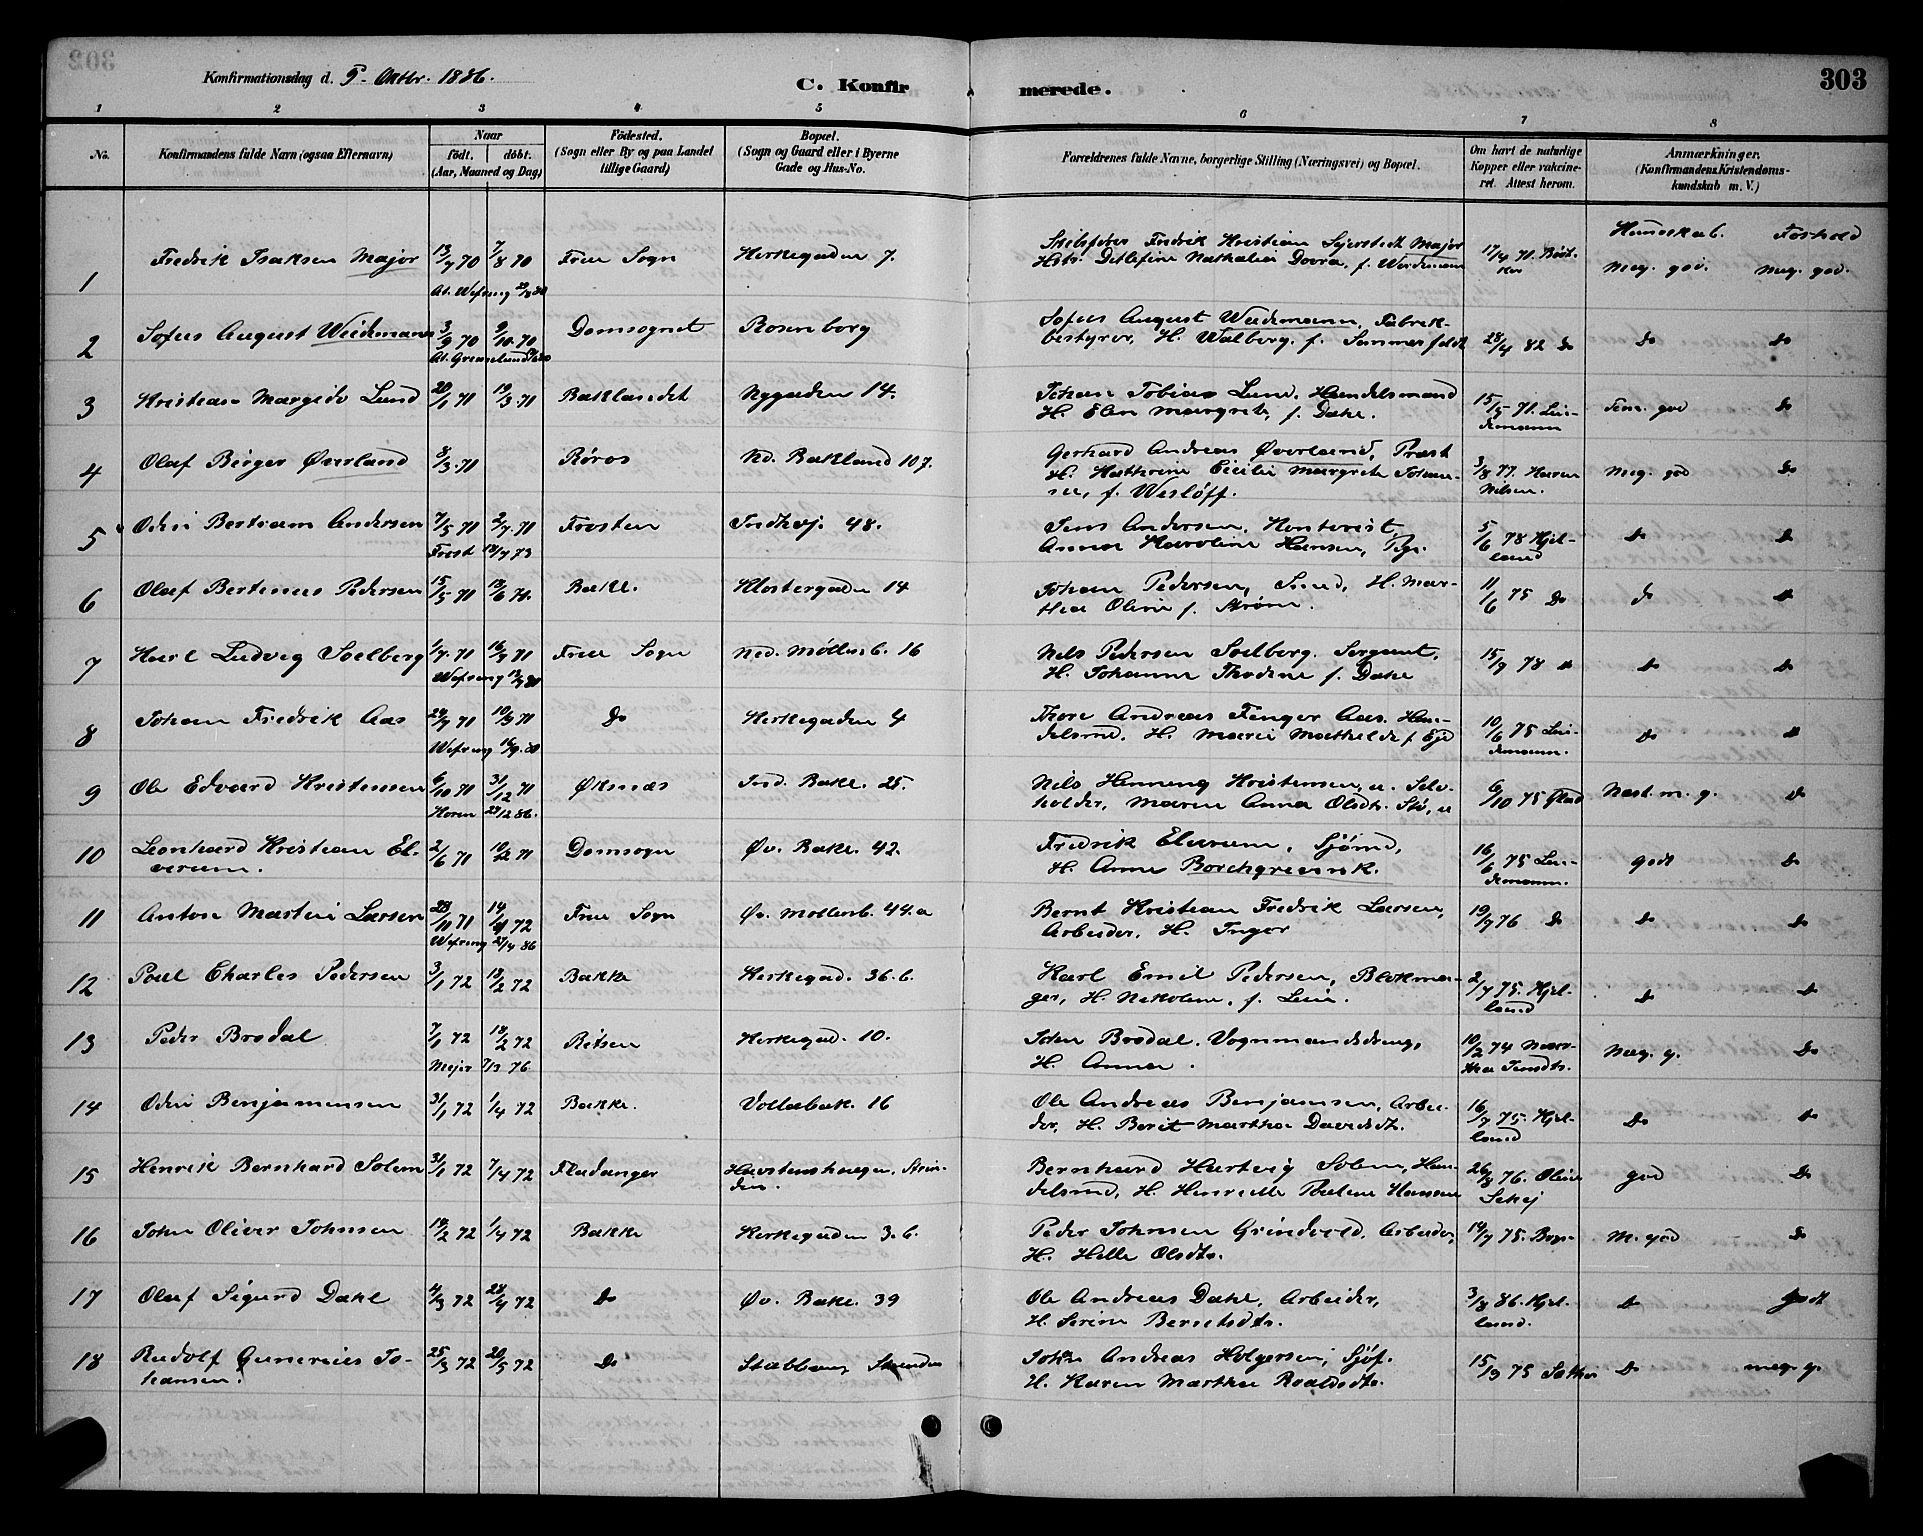 303
Konfirmationsdag d. 5. Oktbr. 1886.
C. Konfirmerede.
1 2 3 4 5 6 7 8
No.
Konfirmandens fulde Navn (ogsaa Efternavn)
Naar
födt. döbt.
(Aar, Maaned og Dag)
Födested.
(Sogn eller By og paa Landet
tillige Gaard)
Bopæl.
(Sogn og Gaard eller i Byerne
Gade og Hus-No.
Forældrenes fulde Navne, borgerlige Stilling (Næringsvei) og Bopæl.
Om havt de naturlige
Kopper eller vakcine-
ret. Attest herom.
Anmærkninger.
(Konfirmandens Kristendoms-
kundskab m. V.)
Kundskab. Forhold
1 Fredrik Isaksen Major 13/7 70 7/8 70 Frue Sogn Kirkegaden 7. Fredrik Kristian Major 17/4 71.
Ditlefine Nathalia Dovra, f. Weidemann Meg. god. Meg. god.
2 Sofus August Weidemann 3/9 70 9/10. 70 Domsognet Rosenborg Sofus August Weidemann, Fabrik-
bestyrer, H. Walborg f. Sommerfeldt 28/4 82 Do Do Do
3 Kristian Margido Lund 20/1 71 19/3. 71 Baklandet Nygaden 14. Johan Tobias Lund, Handelsmand
H. Elen Margrete, f. Dahl. 15/5 71. Lei-
demann Tem. god Do
4 Olaf Birger Øverland 8/3. 71 Røros Ned. Bakland 107. Gerhard Andreas Øverland, Præst
H. Kathrine Cecilie Margrete Johan-
ne, f. Wesløff. 3/8 77. Karen
Nilsen. Meg. god Do
5 Odin Bertram Andersen 7/5 71 2/7. 71 Frosten Indherj. 48. Jens Andersen, Kontorist,
Frost 18/7 73 Anna Karoline Hansen, Pige. 5/6 78 Kjel-
land Do Do
6 Olaf Bertinus Pedersen 15/5 71 18/6 71. Bakl. Klostergaden 14 Johan Pedersen, Smed, H. Mar-
tha Oline f. Strøm. 11/6 75 Do Do Do
7 Karl Ludvig Solberg 1/7. 71 16/9 71 Frue Sogn Ned. Møllenb. 16 Nils Pedersen Solberg, Sergeant,
Wefring H. Johanne Thodine f. Dahl 15/9 78 Do Do Do
8 Johan Fredrik Aas 24/7 71 10/9 71 Do Kirkegaden 4 Thore Andreas Fenger Aas. Han-
Wefring delsmd. H. Marie Mathilde f. Eid 10/6 75 Lei-
demann. Do Do
9 Ole Edvard Kristensen 6/10 71 31/12 71 Øksnæs Ind. Bakl. 25. Nils Henning Kristensen, u. Selv-
Horen 22/2 86. holder, Maren Anna Olsdt. Stø, u 6/10 75 Glad Næst. m. g. Do
10 Leonhard Kristian El- 2/6 71 10/12 71 Domsogn Øv. Bakl. 42. Fredrik Elverum, Sjømd,
verum. H. Anna Borchgrevink. 16/6 75 Lei-
demann. Godt Do
11 Anton Martin Larsen 28/10 71 14/4 72 Frue Sogn Øv. Møllenb. 44.a Bernt Kristian Fredrik Larsen,
Wefring 27/4 86 Arbeider, H. Inger 19/7 76 Do Do Do
12 Poul Charles Pedersen 3/1 72 18/2 72 Bakke Kirkegad. 36.b. Karl Emil Pedersen, Blokma-
ger, H. Nikoline, f. Lein. 2/7 75. Kjel-
land Do Do
13 Peder Brodal 7/1 72 18/2 72 Reitsen Kirkegad. 10. John Brodal, Vognmandsdreng,
Mejer 7/3 76 H. Anna. 10/2 74 Mar-
tha Meg. g. Do
14 Odin Benjaminsen 31/1 72 1/4 72 Bakke. Vollabak. 16 Ole Andreas Benjamsen, Arbei-
der, H. Berit Martha Davidsdt. 16/7 75. Kjel-
land Do Do
15 Henrik Bernhard Solem 31/1 72 7/4 72 Fladanger Karstenshaugen, Strin-
den. Bernhard Hartvig Solem, Han-
delsmd, H. Henriette Pauline Hansen 26/8 76. Oline
god Do
16 John Oliver Johnsen 14/2 72 1/4 72 Bakke Kirkegaden 3.b. Peder Johnsen Grindvold, Arbeider,
H. Helle Olsdtr. 14/7 75. M. god Do
17 Oluf Sigurd Dahl 4/3 72 28/4 72 Do Øv. Bakl. 39 Ole Andreas Dahl, Arbeider,
H. Serine Berntsdtr. 3/8 86. Kjel-
land. Do Godt
18 Rudolf Gunerius Jo- 25/3 72 20/5 72 Do Strinden John Andreas Holgersen, Sjøf.
hansen. H. Karen Martha Roaldsdtr. 15/9 75 Do meg. g.